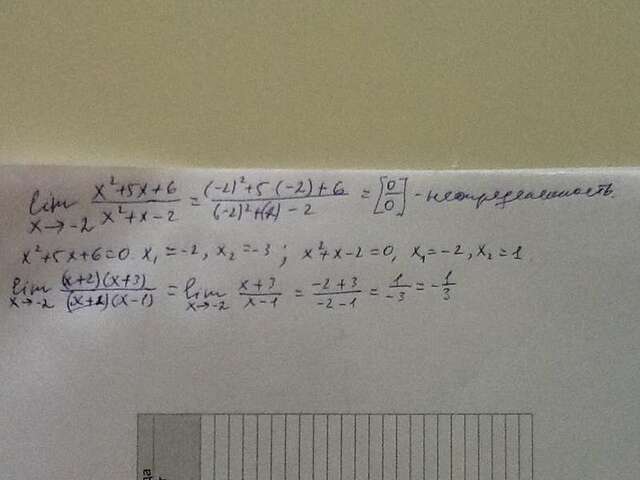 lim x→-2 (x²+5x+6)/(x²+x-2) = ((-2)²+5(-2)+6)/((-2)²+(-2)-2) = [0/0] - неопределенность.
x²+5x+6=0. x₁=-2, x₂=-3; x²+x-2=0, x₁=-2, x₂=1.
lim x→-2 ((x+2)(x+3))/((x+2)(x-1)) = lim x→-2 (x+3)/(x-1) = (-2+3)/(-2-1) = 1/-3 = -1/3